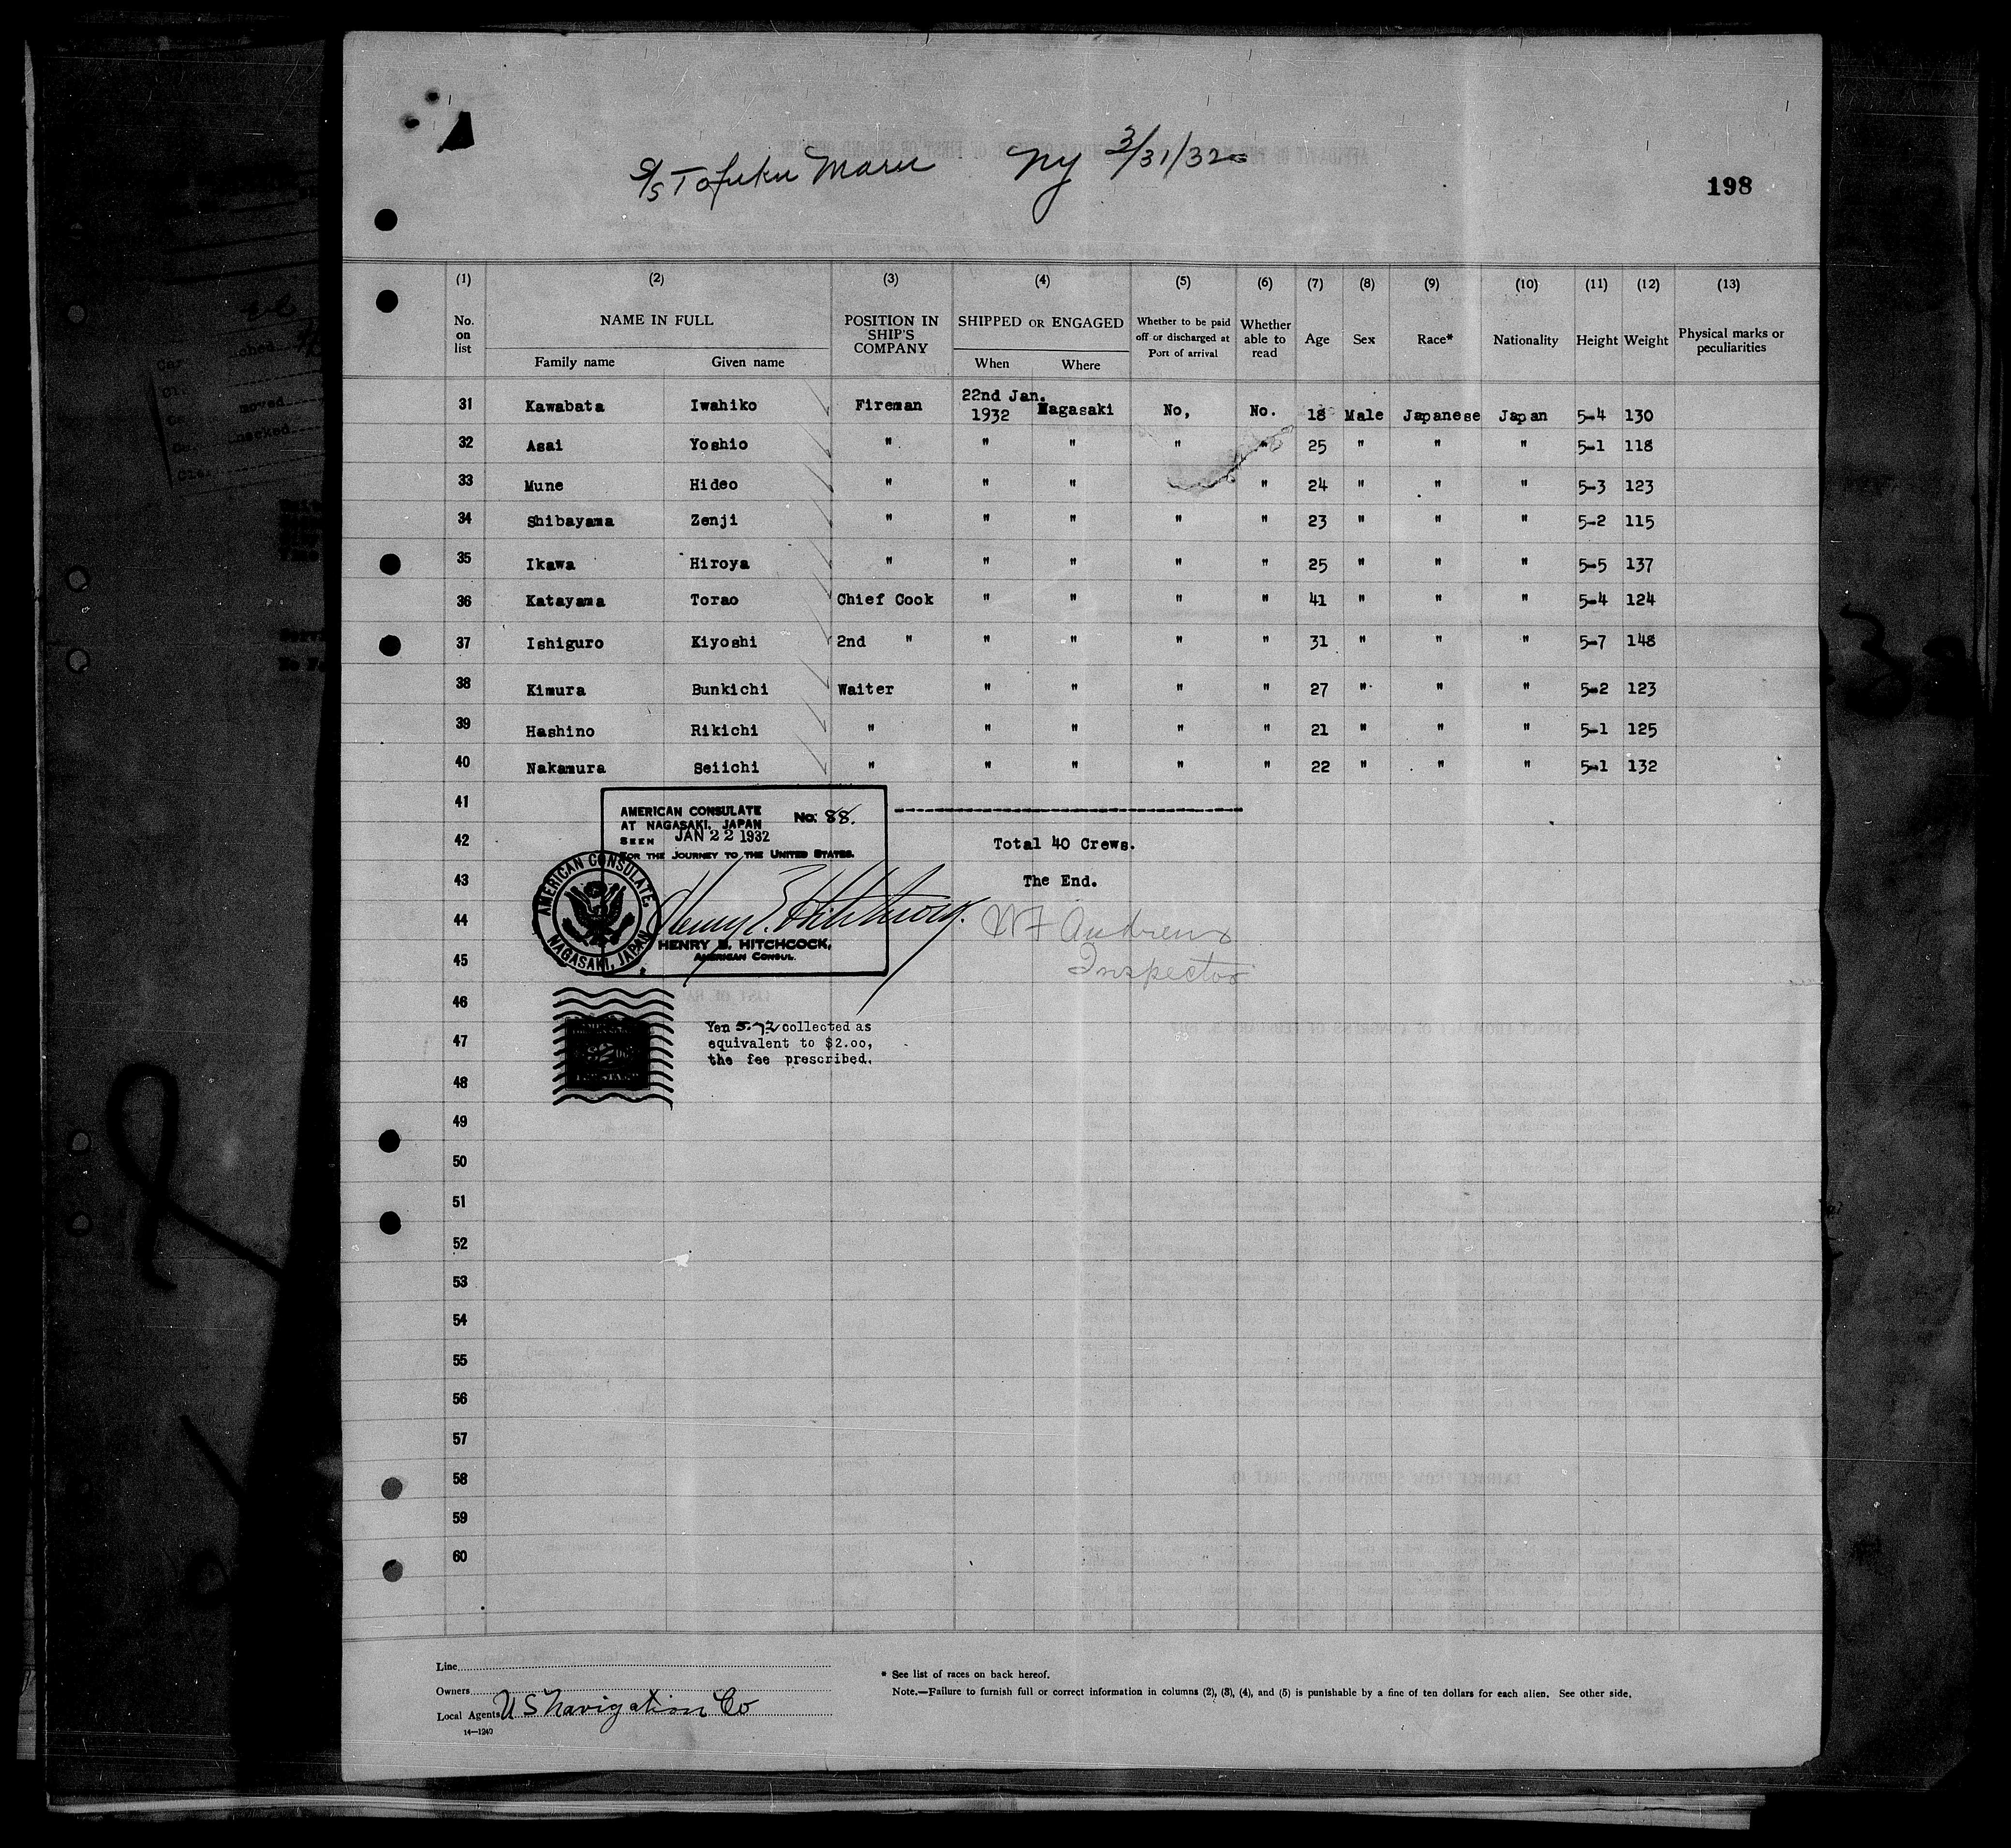 S/S Tofuku Maru NY 3/31/32
198
(1) (2) (3) (4) (5) (6) (7) (8) (9) (10) (11) (12) (13)
No. on list NAME IN FULL Family name Given name POSITION IN SHIP'S COMPANY SHIPPED OR ENGAGED When Where Whether to be paid off or discharged at Port of arrival Whether able to read Age Sex Race* Nationality Height Weight Physical marks or peculiarities
31 Kawabata Iwahiko Fireman 22nd Jan. 1932 Nagasaki No, No. 18 Male Japanese Japan 5-4 130
32 Asai Yoshio " " " " " 25 " " " 5-1 118
33 Mune Hideo " " " " 24 " " " 5-3 123
34 Shibayama Zenji " " " " " 23 " " " 5-2 115
35 Ikawa Hiroya " " " " " 25 " " " 5-5 137
36 Katayama Torao Chief Cook " " " " 41 " " " 5-4 124
37 Ishiguro Kiyoshi 2nd " " " " " 31 " " " 5-7 148
38 Kimura Bunkichi Waiter " " " " 27 " " " 5-2 123
39 Hashino Rikichi " " " " " 21 " " " 5-1 125
40 Nakamura Seiichi " " " " " 22 " " " 5-1 132
41
42 Total 40 Crews.
43 The End.
AMERICAN CONSULATE No. 88.
AT NAGASAKI, JAPAN
SEEN JAN 22 1932
FOR THE JOURNEY TO THE UNITED STATES.
AMERICAN CONSULATE. NAGASAKI, JAPAN
Henry B. Hitchcock.
HENRY B. HITCHCOCK,
AMERICAN CONSUL.
44 Andrews
45 Inspector
46
Yen 5.72 collected as
47 equivalent to $2.00,
the fee prescribed.
48
49
50
51
52
53
54
55
56
57
58
59
60
Line
Owners
Local Agents U S Navigation Co
14—1240
* See list of races on back hereof.
Note.—Failure to furnish full or correct information in columns (2), (3), (4), and (5) is punishable by a fine of ten dollars for each alien. See other side.